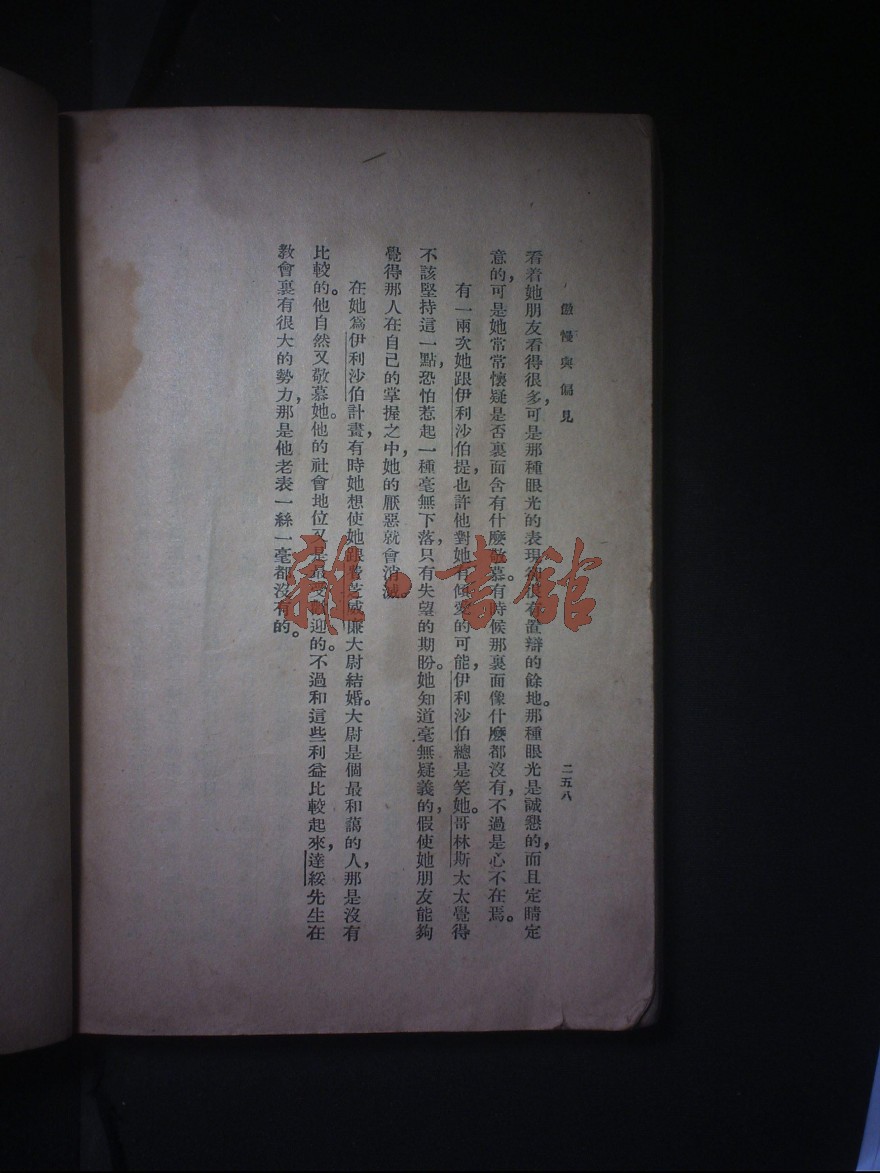 傲慢與偏見
二五八
看着她朋友看得很多,可是那種眼光的表現却很有置辯的餘地。那種眼光是誠懇的,而且定睛定
意的,可是她常常懷疑是否裏面含有什麼敬慕。有時候那裏面像什麼都沒有,不過是心不在焉。
有一兩次她跟伊利沙伯提,也許他對她有傾愛的可能,伊利沙伯總是笑她。哥林斯太太覺得
不該堅持這一點,恐怕惹起一種毫無下落,只有失望的期盼。她知道毫無疑義的,假使她朋友能夠
覺得那人在自己的掌握之中,她的厭惡就會消滅。
在她爲伊利沙伯計畫,有時她想使她跟費茲威廉大尉結婚。大尉是個最和藹的人,那是沒有
比較的。他自然又敬慕她。他的社會地位又是最受歡迎的。不過和這些利益比較起來,達綏先生在
教會裏有很大的勢力,那是他老表一絲一毫都沒有的。
雜·書館